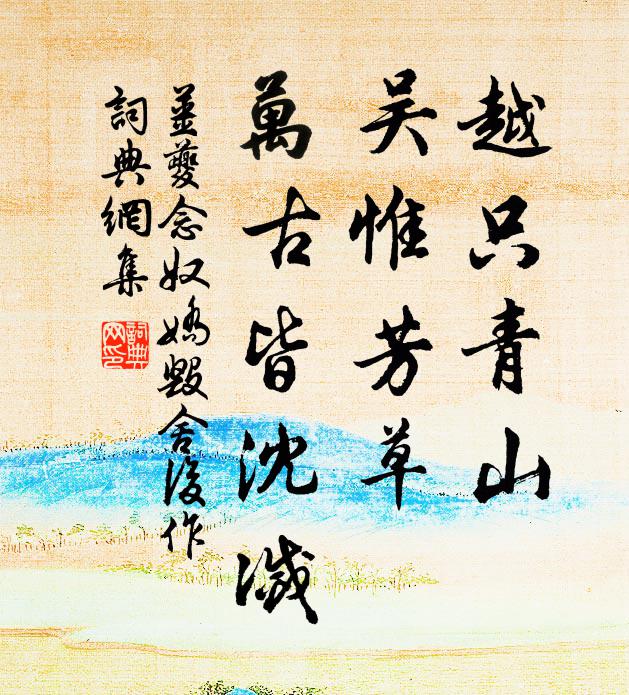 越只青山
吴惟芳草
萬古皆沈滅
薑夔念奴嬌毀舍後作
詞典網集
詞典
网印